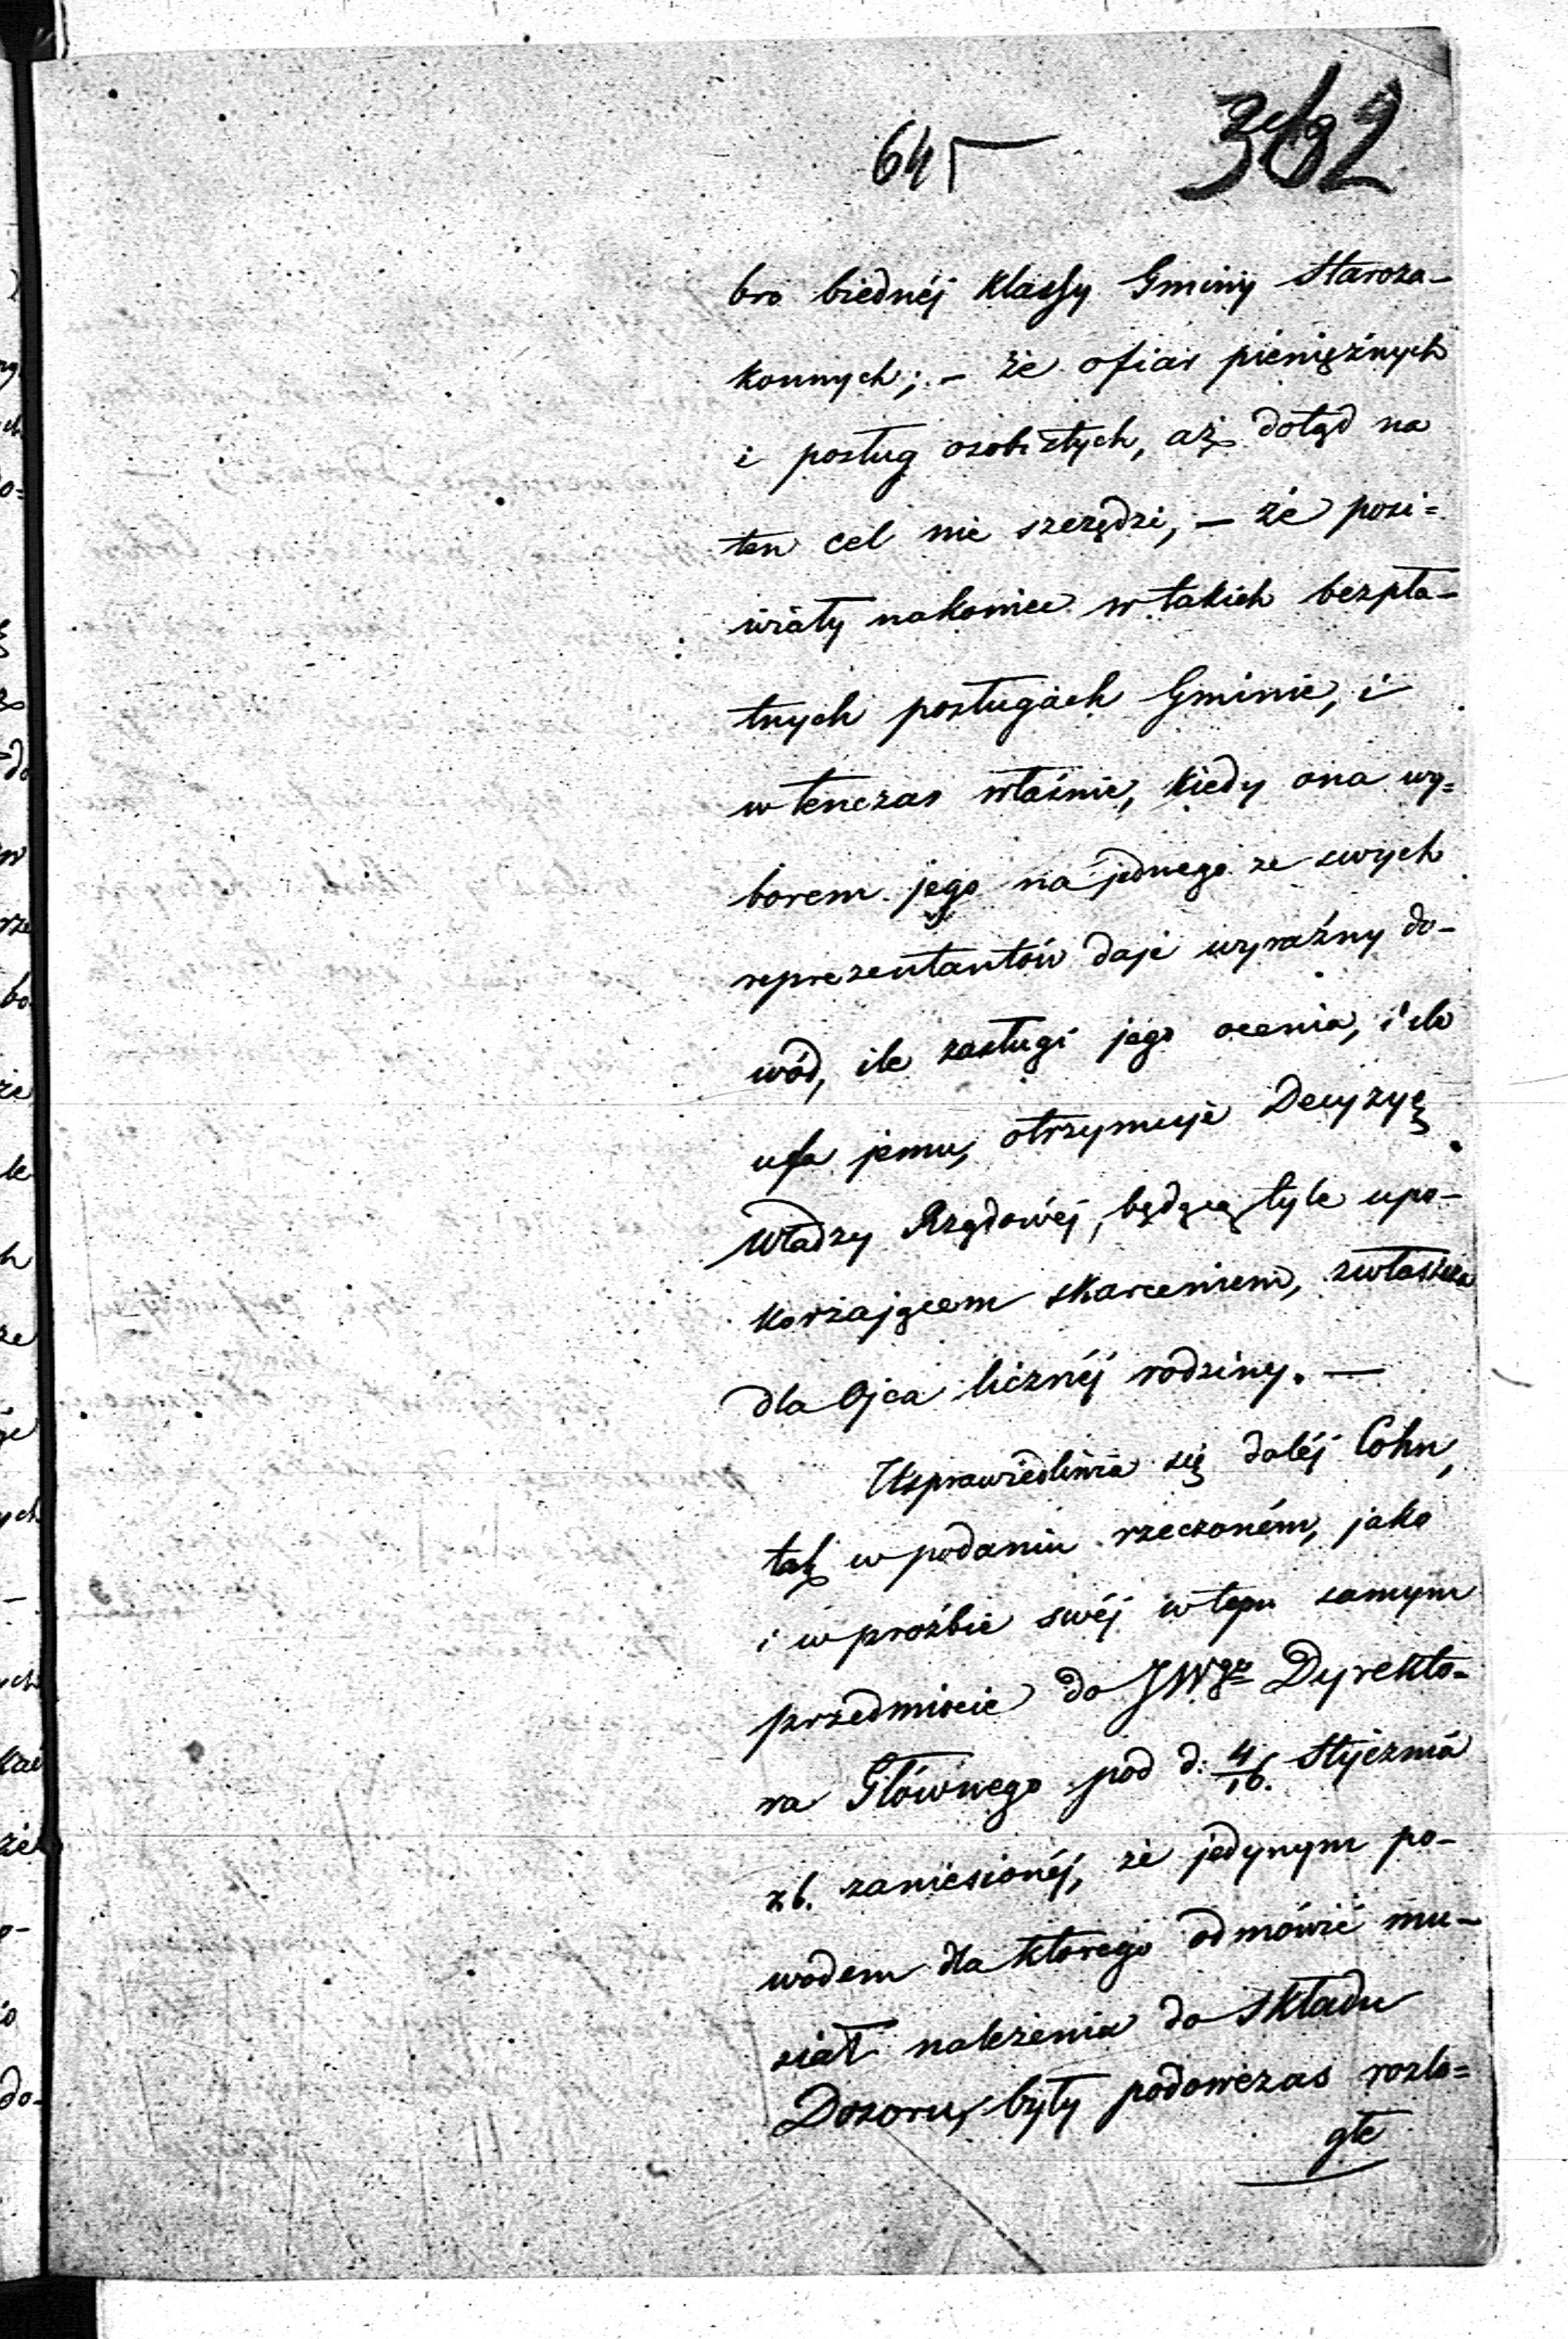 645
362
bro biednéj klassy Gminy Staroza-
konnych; – że ofiar pieniężnych
i posług osobistych, aż dotąd na
ten cel nie szczędzi, – że posi=
wiały nakoniec w takich bezpła-
tnych posługach Gminie, i
wtenczas właśnie, kiedy ona wy=
borem jego na jednego ze swych
reprezentantów daje wyraźny do-
wód, ile zasługi jego ocenia, i ile
ufa jemu, otrzymuje Decyzyę
Władzy Rządowéj, będącą tyle upo-
karzającem skarceniem, zwłaszcza
dla Ojca licznéj rodziny. —
Usprawiedliwia się daléj Cohn,
tak w podaniu rzeczoném, jako
i w prożbie swéj w tym samym
przedmiocie do JWgo Dyrekto-
ra Głównego pod d: 4/16. Stycznia
r b. zaniesionéj, że jedynym po-
wodem dla którego odmówić mu-
siał należenia do składu
Dozoru, były podówczas rozle=
głe